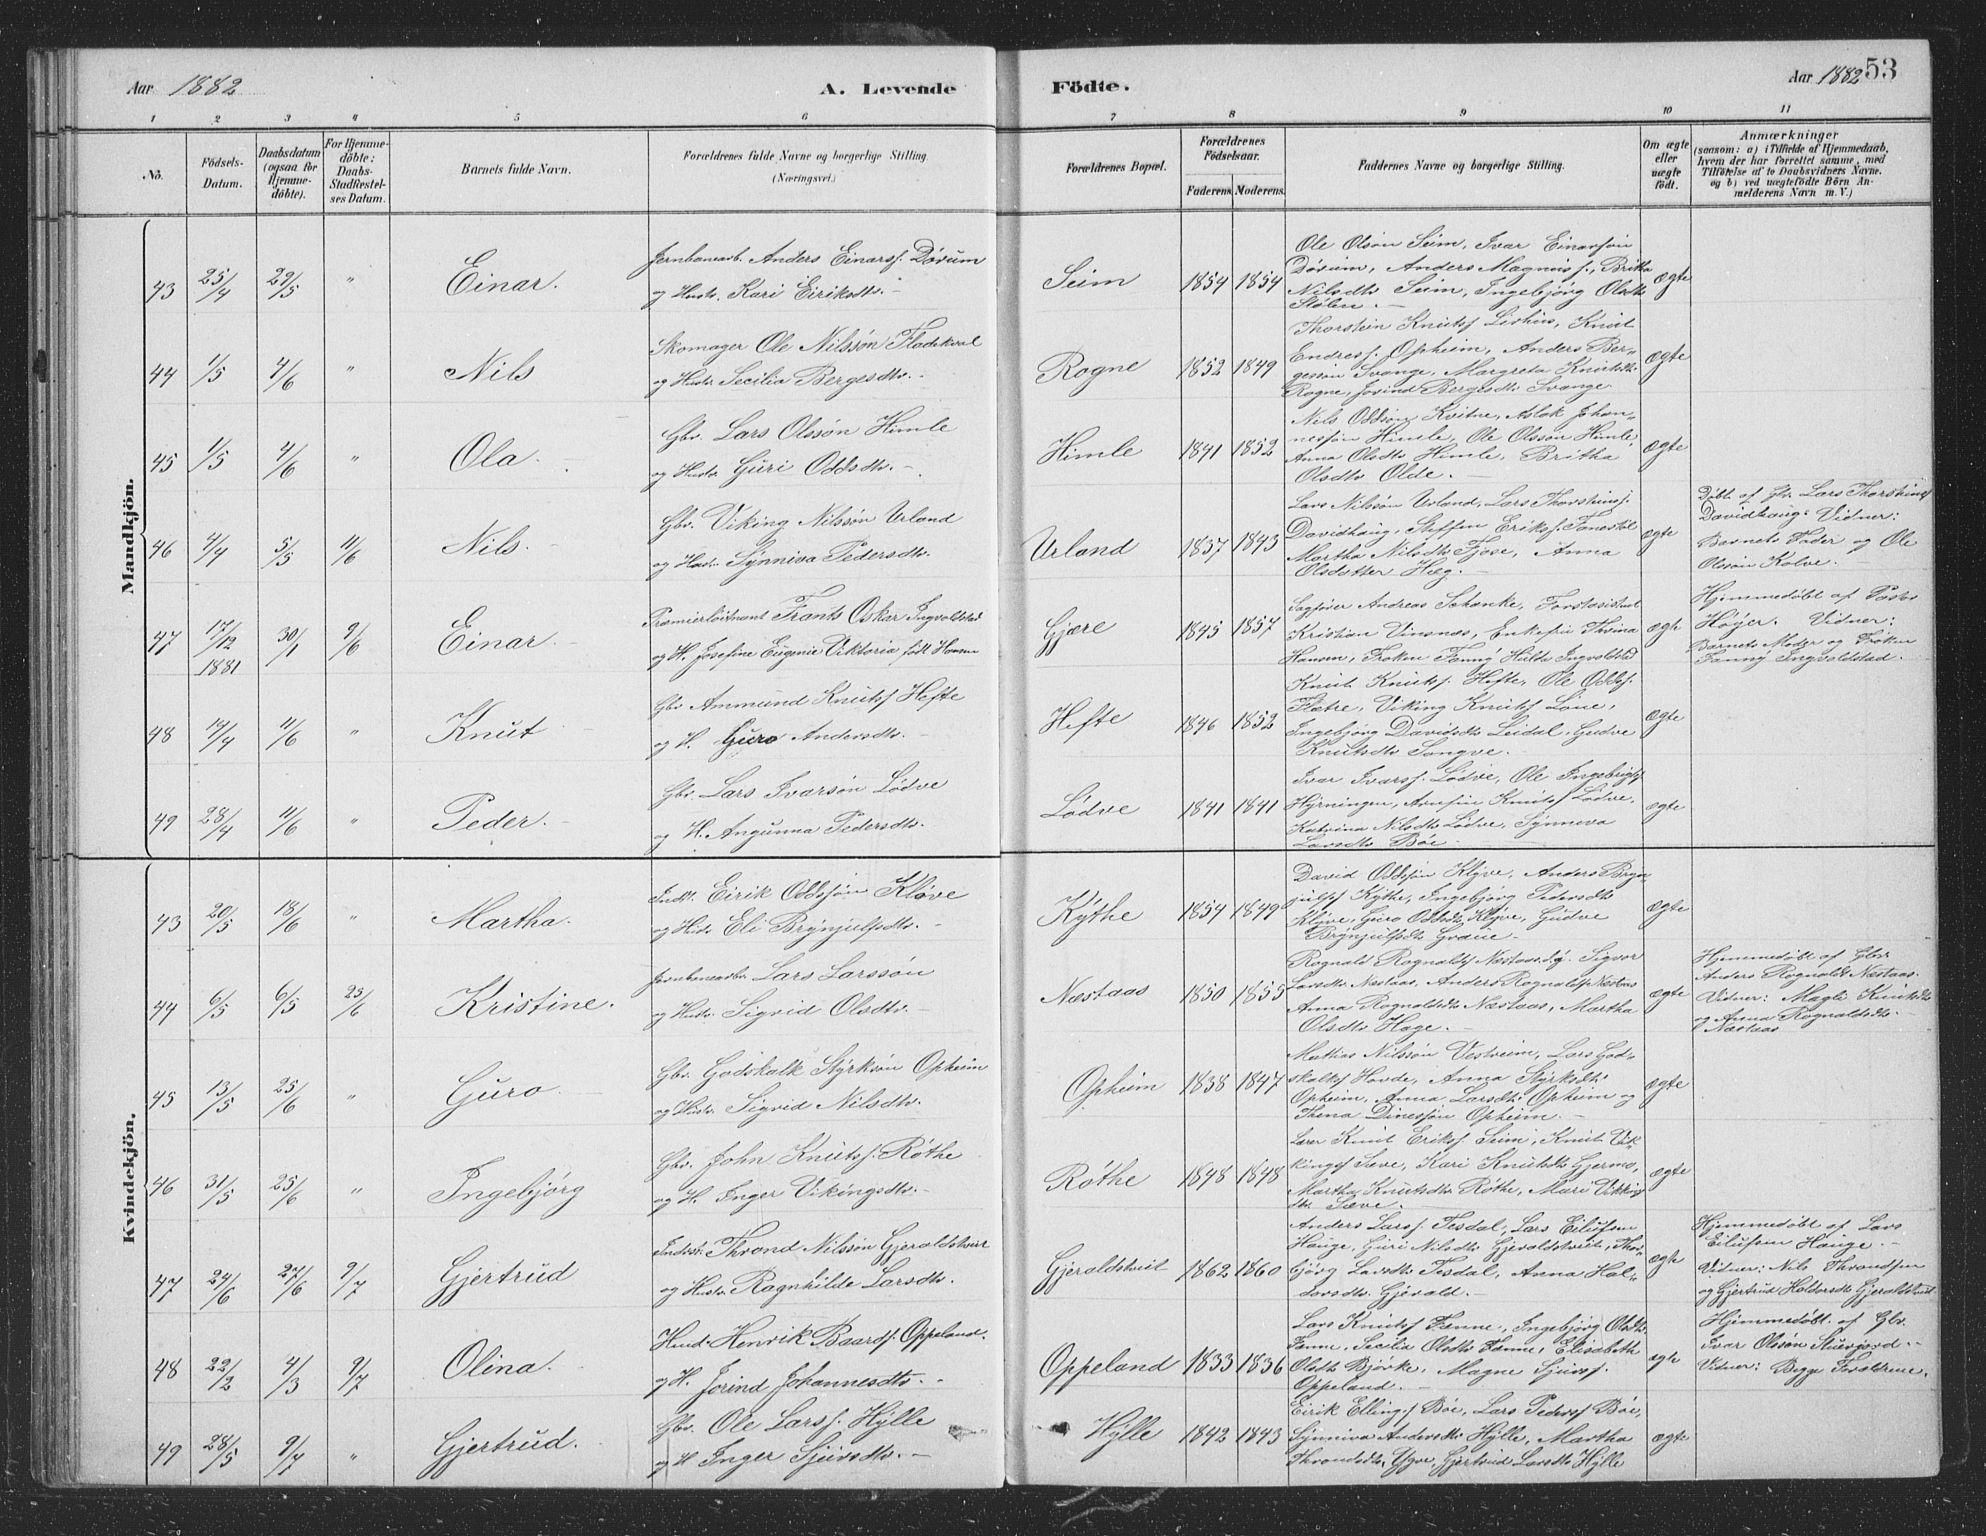 Aar 1882
A. Levende
Födte.
Aar 1882
53
1 2 3 4 5 6 7 8 9 10 11
No.
Födsels-
Datum.
Daabsdatum
(ogsaa for
Hjemme-
döbte).
For Hjemme-
döbte:
Daabs-
Stadfæstel-
ses Datum.
Barnets fulde Navn.
Forældrenes fulde Navne og borgerlige Stilling.
(Næringsvei.)
Forældrenes Bopæl.
Forældrenes
Födselsaar.
Faderens. Moderens.
Faddernes Navne og borgerlige Stilling.
Om ægte
eller
uægte
födt.
Anmærkninger
(saasom: a) i Tilfælde af Hjemmedaab,
hvem der har forrettet samme, med
Tilföielse af to Daabsvidners Navne.
og b) ved uægtefödte Börn An-
melderens Navn m. V.)
Mandkjön.
43 25/4 29/5 " Einar.
Jernbanearb. Anders Einarss. Dörum
og Hustr. Kari Eiriksdtr. -
Seim 1854 1854
Ole Olsön Seim, Ivar Einarsön
Dörum, Anders Magnuss., Britha
Nilsdtr. Seim, Ingebjörg Olsdtr.
Stölen. -
ægte
44 1/5 4/6 " Nils
Skomager Ole Nilssön Fladekval
og Hustr. Secilia Bergesdtr. -
Rogne 1852 1849
Thorstein Knutss. Lirhus, Knut
Endress. Opheim, Anders Ber-
gessön Svange, Margreta Knutsdtr.
Rogne, Jorind Bergesdtr. Svange.
ægte
45 1/5 4/6 " Ola.
Gbr. Lars Olssön Himle
og Hustr. Guri Oddsdtr. -
Himle 1841 1852
Nils Oddsön Kvitne, Aslak Johan-
nesson Himle, Ole Olssön Himle,
Anna Olsdtr. Himle, Britha
Olsdtr. Olde. -
ægte
46 4/4 5/5 11/6 Nils.
Gbr. Viking Nilssön Urland
og Hustr. Synniva Pedersdtr.
Urland 1837 1843
Lars Nilsön Urland, Lars Thorsteinss.
Davidhaug, Steffen Erikss.
Martha Nilsdtr. Fjose, Anna
Olsdatter Hæg. -
ægte
Döbt af Gbr. Lars Thorsteinss.
Davidhaug. Vidner:
Barnets Fader og Ole
Olssön Kolve. -
47 17/12 1881 30/1 9/6 Einar.
Premierlöitnant Frants Oskar Ingvoldstad
og H. Josefine Eugenie Viktoria födt Hansen
Gjære 1845 1857
Sagförer Andreas Schanke, Forstasistent
Kristian Vinsnæs, Enkefru Thrina
Hansen, Fröken Fanny Hulta Ingvoldstad
ægte
Hjemmedöbt af Pastor
Höyer. Vidner:
Barnets Moder og Fröken
Fanny Ingvoldstad. -
48 14/4 11/6 Knut
Gbr. Ammund Knutss. Hefte
og H. Guro Andersdtr. -
Hefte 1846 1852
Knut Knutss. Hefte, Ole Oddss.
Flatre, Viking Knutss. Löne,
Ingebjörg Davidsdtr. Leidal, Gudve
Knutsdtr. Songve. -
ægte
49 28/4 11/6 " Peder.
Gbr. Lars Ivarsön Lödve
og H. Angunna Pedersdtr.
Lödve 1841 1841
Ivar Ivarss. Lödve, Ole Ingebrigtss.
Hyrningen, Arnfin Knutss. Lödve,
Katrina Nilsdtr. Lödve, Synneva
Larsdtr. Böe. -
ægte
Kvindekjön.
43 20/5 18/6 " Martha.
Indst. Eirik Oddsjön Klöve
og Hustr. Eli Brynjulfsdtr. -
Kythe 1854 1849
David Oddssön Klyve, Anders Bryn-
julfss. Kythe, Ingebjörg Pedersdtr.
Klyve, Guro Oddsdtr. Klyve, Gudve
Brynjulfsdtr. Graue. -
ægte
44 6/5 6/5 25/6 Kristine.
Jernbanearbr. Lars Larssön
og Hustr. Sigrid Olsdtr. -
Næstaas 1850 1855
Rognald Rognaldss. Næstaas, Sigvor
Larsdtr. Næstaas, Anders Rognaldss. Næstaas
Anna Rognaldsdtr. Næstaas, Martha
Olsdtr. Hage. -
ægte
Hjemmedöbt af Gbr.
Anders Rognalds. Næstaas.
Vidner: Magli Knutsdtr.
og Anna Rognaldsdtr.
Næstaas
45 13/5 25/6 " Guro.
Gbr. Godskalk Styrksön Opheim
og Hustr. Sigvid Nilsdtr.
Opheim 1838 1847
Mathias Nilssön Vestreim, Lars God-
skalkss. Hovde, Anna Styrksdtr.
Opheim, Anna Larsdtr. Opheim og
Thena Dinessön Opheim. -
ægte
46 31/5 25/6 " Ingebjörg
Gbr. John Knutss. Röthe
og H. Inger Vikingsdtr. -
Röthe 1848 1848
Lærer Knut Erikss. Seim, Knut Vik-
kingss. Sæve, Kari Knutsdtr. Gjerme,
Martha Knutsdtr. Röthe, Mari Vikkings
dtr. Sæve. -
ægte
47 24/6 27/6 9/7 Gjertrud
Indrstr. Thrond Nilssön Gjeraldstveit
og Hustr. Ragnhilde Larsdtr.
Gjeraldstveit 1862 1860
Anders Larss. Tesdal, Lars Eilufsen
Hauge, Guri Nilsdtr. Gjeraldstveit, Thor-
björg Larsdtr. Tesdal, Anna Hal-
dorsdtr. Gjerald. -
ægte
Hjemmedöbt af Lars
Eilufsen Hauge. -
Vidner: Nils Throndsen
og Gjertrud Haldorsdtr. Gjeraldstveit
48 22/2 4/3 9/7 Olina.
Husm. Henrik Baards. Oppeland.
og H. Jorind Johannesdtr. -
Oppeland 1833 1836
Lars Knutss. Fenne, Ingebjörg Olsdtr.
Fenne, Secilia Olsdtr. Fenne, Elisabeth
Olsdtr. Björke, Magne Sjurss.
Oppeland. -
ægte
Hjemmedöbt. af Gbr.
Ivar Olssön
Vidner: Begge Foreldrene.
49 28/5 9/7 " Gjertrud.
Gbr. Ole Larss. Hylle
og H. Inger Sjursdtr. -
Hylle 1842 1843
Eirik Ellingss. Böe, Lars Pederss. Böe,
Synniva Andersdtr. Hylle, Martha
Throndsdtr. Ygre, Gjertrud Larsdtr. Hylle
ægte